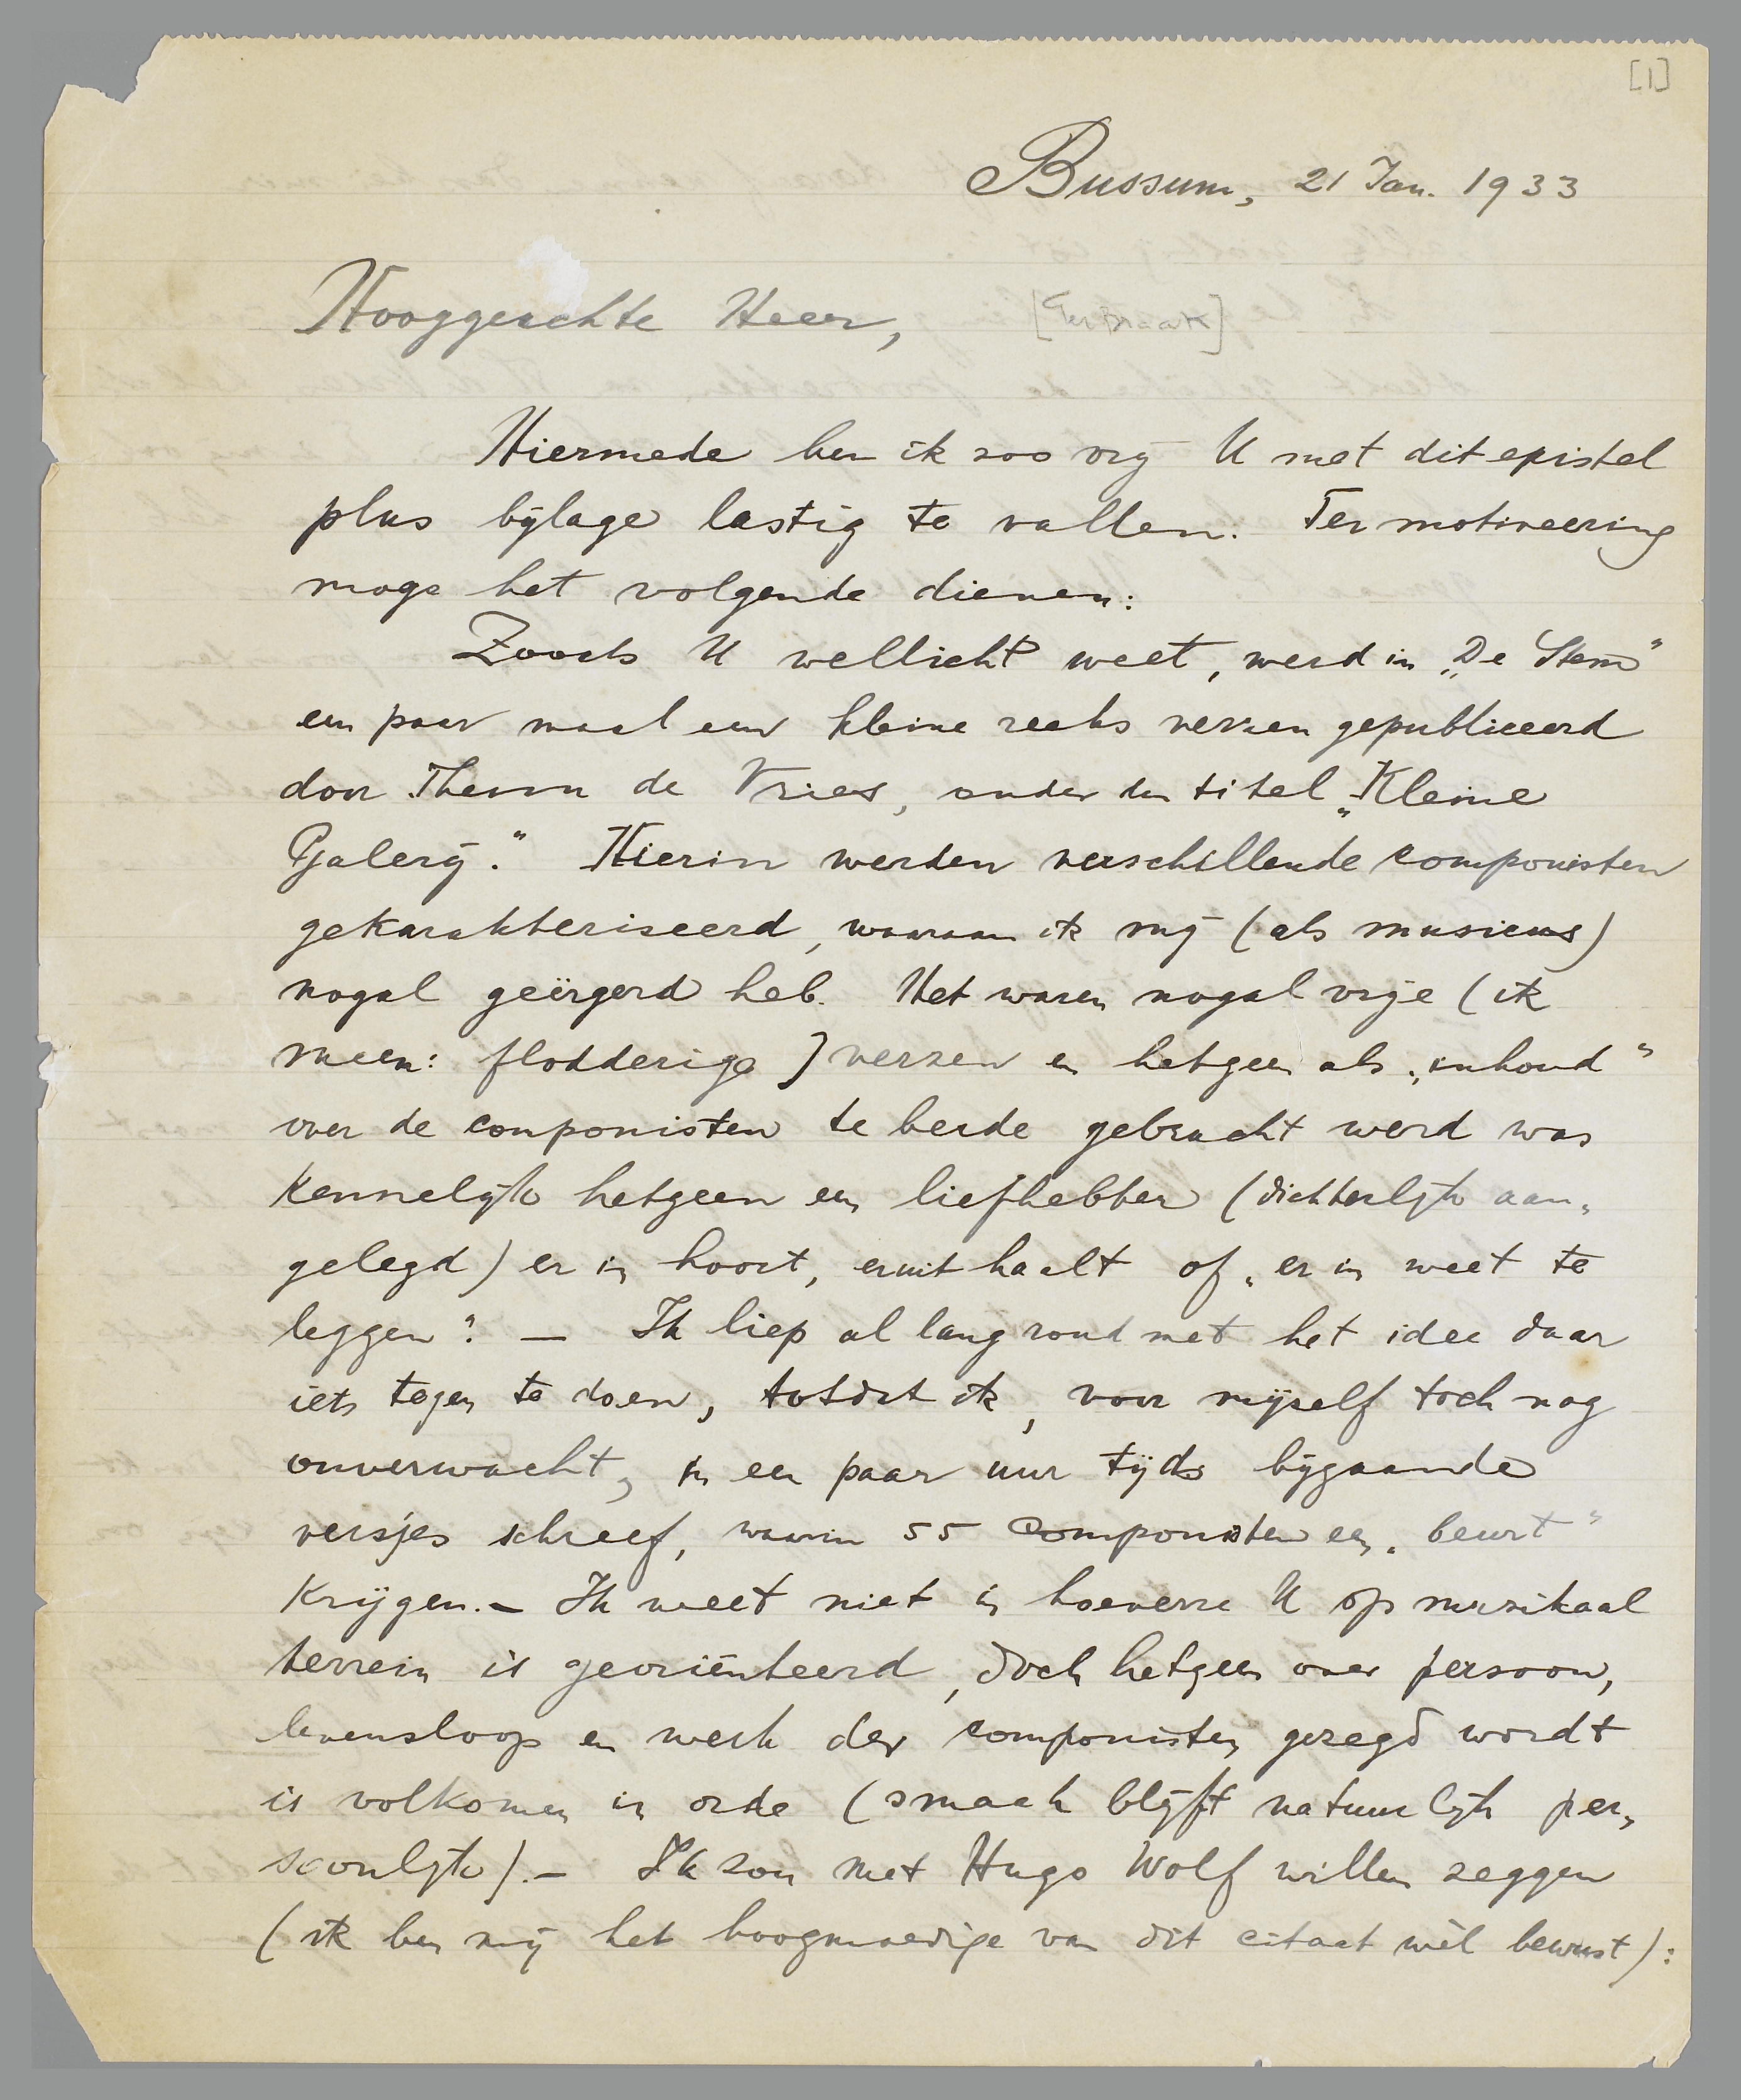 [1]
Bussum, 21 Jan. 1933
Hooggeachte Heer, [Ter Braak]
Hiermede ben ik zoo vrij U met dit epistel
plus bijlage lastig te vallen. Ter motiveering
moge het volgende dienen:
Zooals U wellicht weet, werd in „De Stem"
een paar maal een kleine reeks verzen gepubliceerd
door Theun de Vries, onder den titel „Kleine
Galerij." Hierin werden verschillende componisten
gekarakteriseerd, waaraan ik mij (als musicus)
nogal geërgerd heb. Het waren nogal vrije (ik
meen: flodderige) verzen en hetgeen als „inhoud"
over de componisten te berde gebracht werd was
kennelijk hetgeen een liefhebber (dichterlijk aan-
gelegd) er in hoort, eruit haalt of „er in weet te
leggen". — Ik liep al lang rond met het idee daar
iets tegen te doen, totdat ik, voor mijzelf toch nog
onverwacht, in een paar uur tijds bijgaande
versjes schreef, waarin 55 componisten een „beurt"
krijgen. — Ik weet niet in hoeverre U op muzikaal
terrein is georiënteerd, doch hetgeen over persoon,
levensloop en werk der componisten gezegd wordt
is volkomen in orde (smaak blijft natuurlijk per-
soonlijk). — Ik zou met Hugo Wolf willen zeggen
(ik ben mij het hoogmoedige van dit citaat wèl bewust):